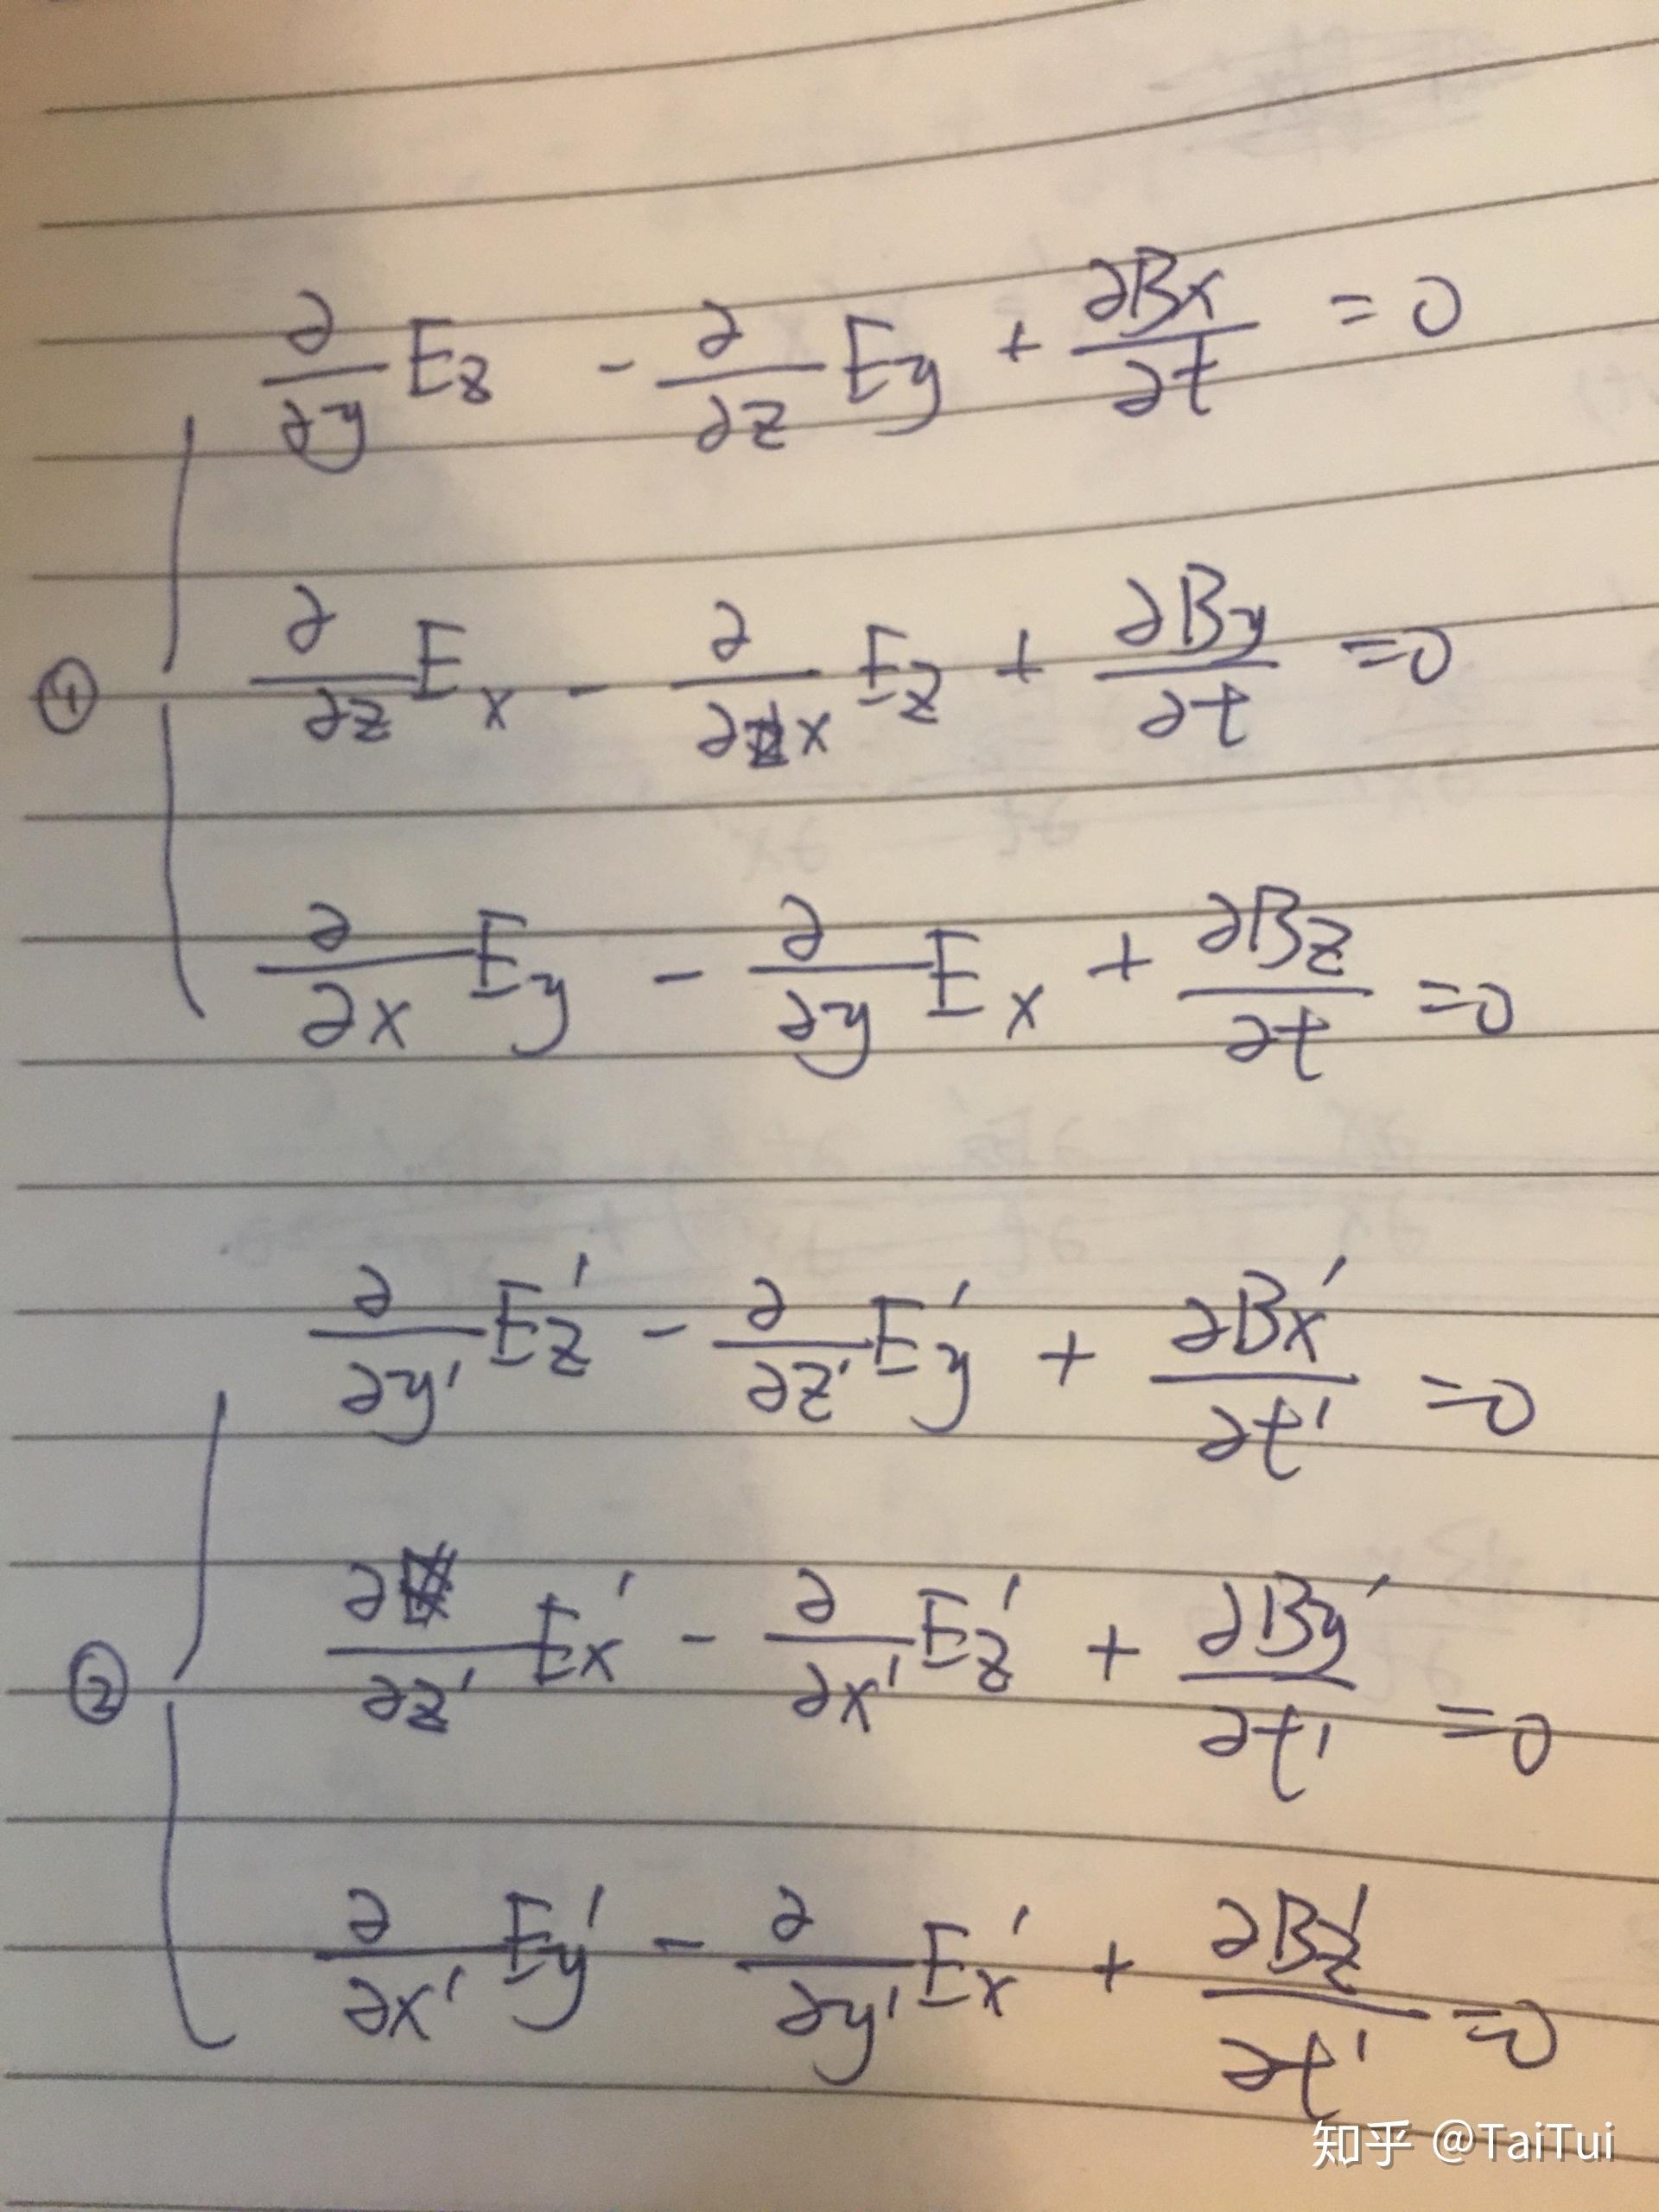 ∂/∂y Ez - ∂/∂z Ey + ∂Bx/∂t = 0
① ∂/∂z Ex - ∂/∂x Ez + ∂By/∂t = 0
∂/∂x Ey - ∂/∂y Ex + ∂Bz/∂t = 0
∂/∂y' Ez' - ∂/∂z' Ey' + ∂Bx'/∂t' = 0
② ∂/∂z' Ex' - ∂/∂x' Ez' + ∂By'/∂t' = 0
∂/∂x' Ey' - ∂/∂y' Ex' + ∂Bz'/∂t' = 0
知乎 @TaiTui